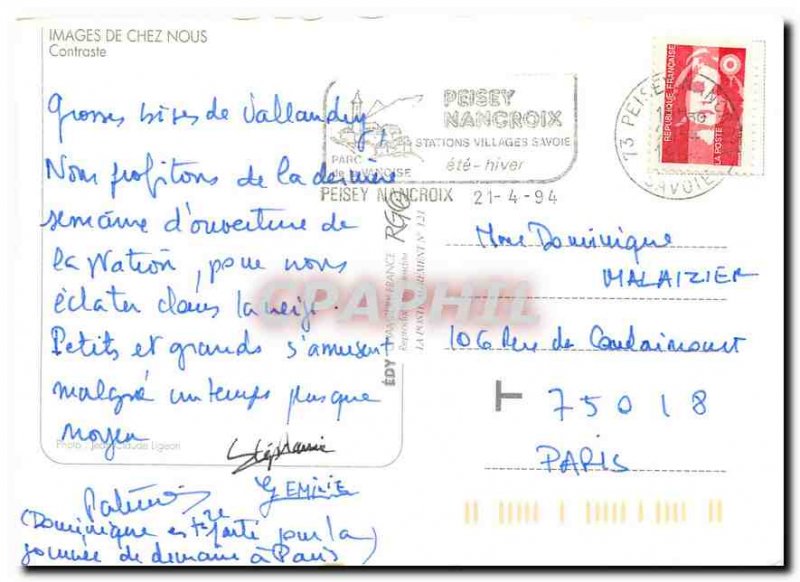 IMAGES DE CHEZ NOUS
Contraste
Grosses bises de Vallandry,
Nous profitons de la dernière
semaine d'ouverture de
la station, pour nous
éclater dans la neige.
Petits et grands s'amusent
malgré un temps plus que
moyen
Photo : Jean-Claude Ligeon
Stéphanie
EMILIE
(Dominique est repartie pour la
journée de demain à Paris)
PEISEY
NANCROIX
STATIONS VILLAGES SAVOIE
été - hiver
PARC
de la VANOISE
PEISEY NANCROIX 21-4-94
73 PEISEY NANCROIX
SAVOIE
REPUBLIQUE FRANÇAISE
LA POSTE
EDY
FRANCE
LA POSTE AGREMENT N° 121
CPAPHIL
Mme Dominique
MALAIZIER
106 Rue de Caulaincourt
T 75018
PARIS